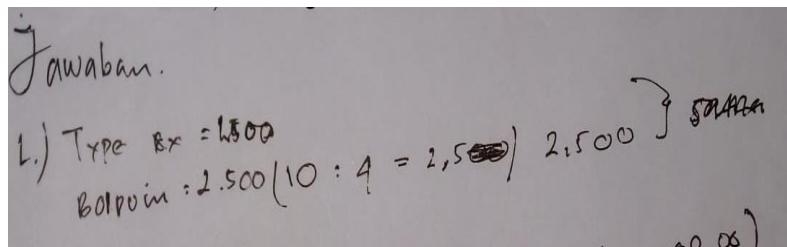 Jawaban.
1.) Type Ex = 2.500
Bolpoin : 2.500 (10 : 4 = 2,5) 2.500 } sama